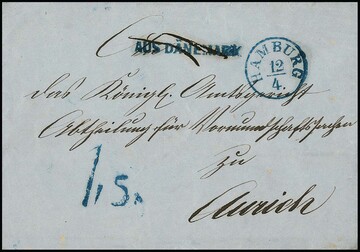 AUS DÄNEMARK
HAMBURG
12
4.
Das Königl. Amtsgericht
Abtheilung für Vormundschaftssachen
zu
Aurich